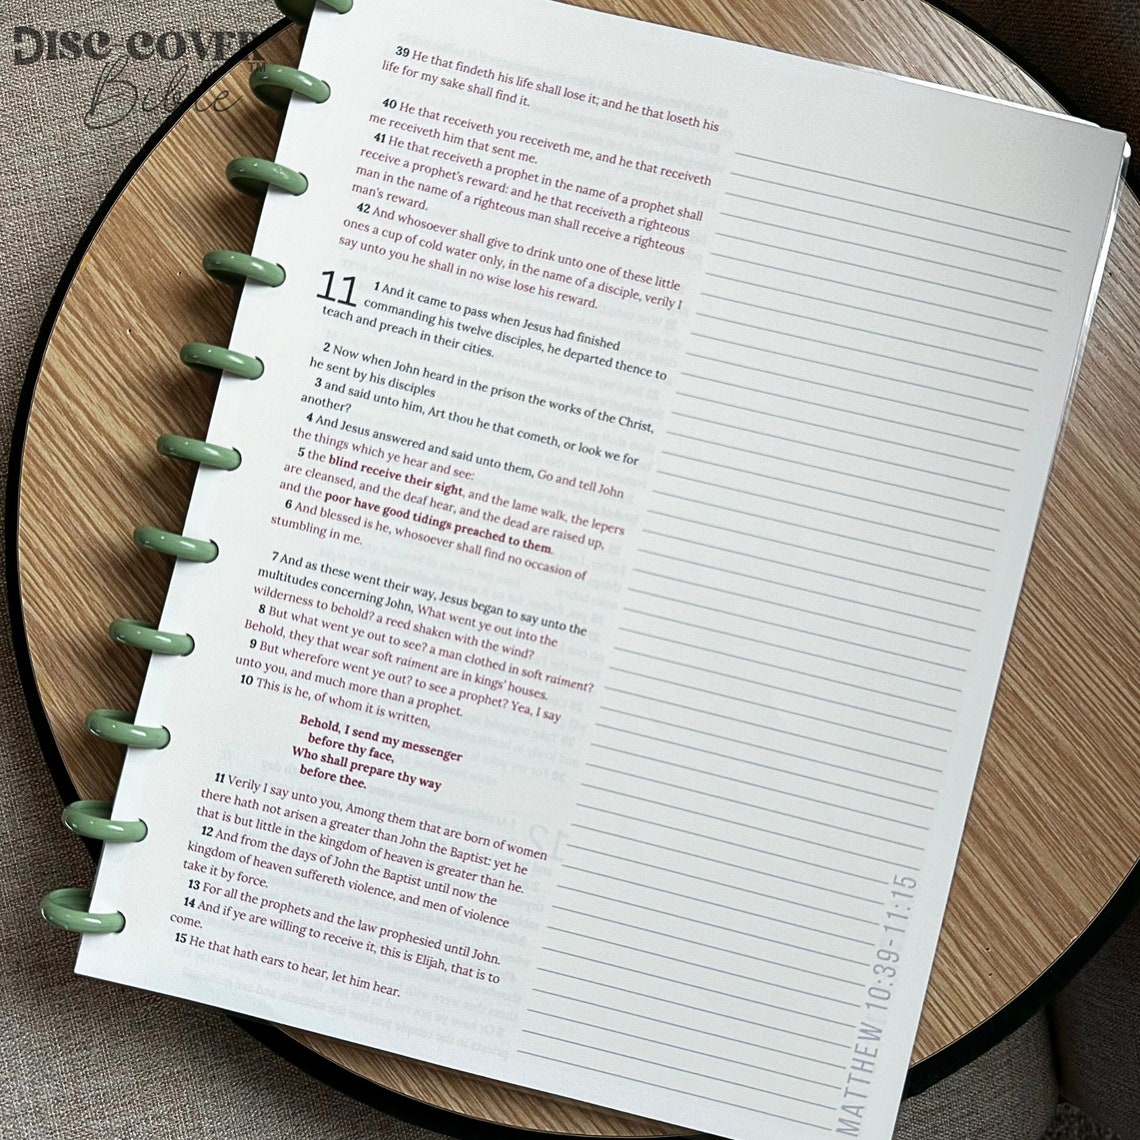 DISC-COVER
Bible™
39 He that findeth his life shall lose it; and he that loseth his
life for my sake shall find it.
40 He that receiveth you receiveth me, and he that receiveth
me receiveth him that sent me.
41 He that receiveth a prophet in the name of a prophet shall
receive a prophet's reward: and he that receiveth a righteous
man in the name of a righteous man shall receive a righteous
man's reward.
42 And whosoever shall give to drink unto one of these little
ones a cup of cold water only, in the name of a disciple, verily I
say unto you he shall in no wise lose his reward.
11 1 And it came to pass when Jesus had finished
commanding his twelve disciples, he departed thence to
teach and preach in their cities.
2 Now when John heard in the prison the works of the Christ,
he sent by his disciples
3 and said unto him, Art thou he that cometh, or look we for
another?
4 And Jesus answered and said unto them, Go and tell John
the things which ye hear and see:
5 the blind receive their sight, and the lame walk, the lepers
are cleansed, and the deaf hear, and the dead are raised up,
and the poor have good tidings preached to them.
6 And blessed is he, whosoever shall find no occasion of
stumbling in me.
7 And as these went their way, Jesus began to say unto the
multitudes concerning John, What went ye out into the
wilderness to behold? a reed shaken with the wind?
8 But what went ye out to see? a man clothed in soft raiment?
Behold, they that wear soft raiment are in kings' houses.
9 But wherefore went ye out? to see a prophet? Yea, I say
unto you, and much more than a prophet.
10 This is he, of whom it is written,
Behold, I send my messenger
before thy face,
Who shall prepare thy way
before thee.
11 Verily I say unto you, Among them that are born of women
there hath not arisen a greater than John the Baptist: yet he
that is but little in the kingdom of heaven is greater than he.
12 And from the days of John the Baptist until now the
kingdom of heaven suffereth violence, and men of violence
take it by force.
13 For all the prophets and the law prophesied until John.
14 And if ye are willing to receive it, this is Elijah, that is to
come.
15 He that hath ears to hear, let him hear.
MATTHEW 10:39-11:15